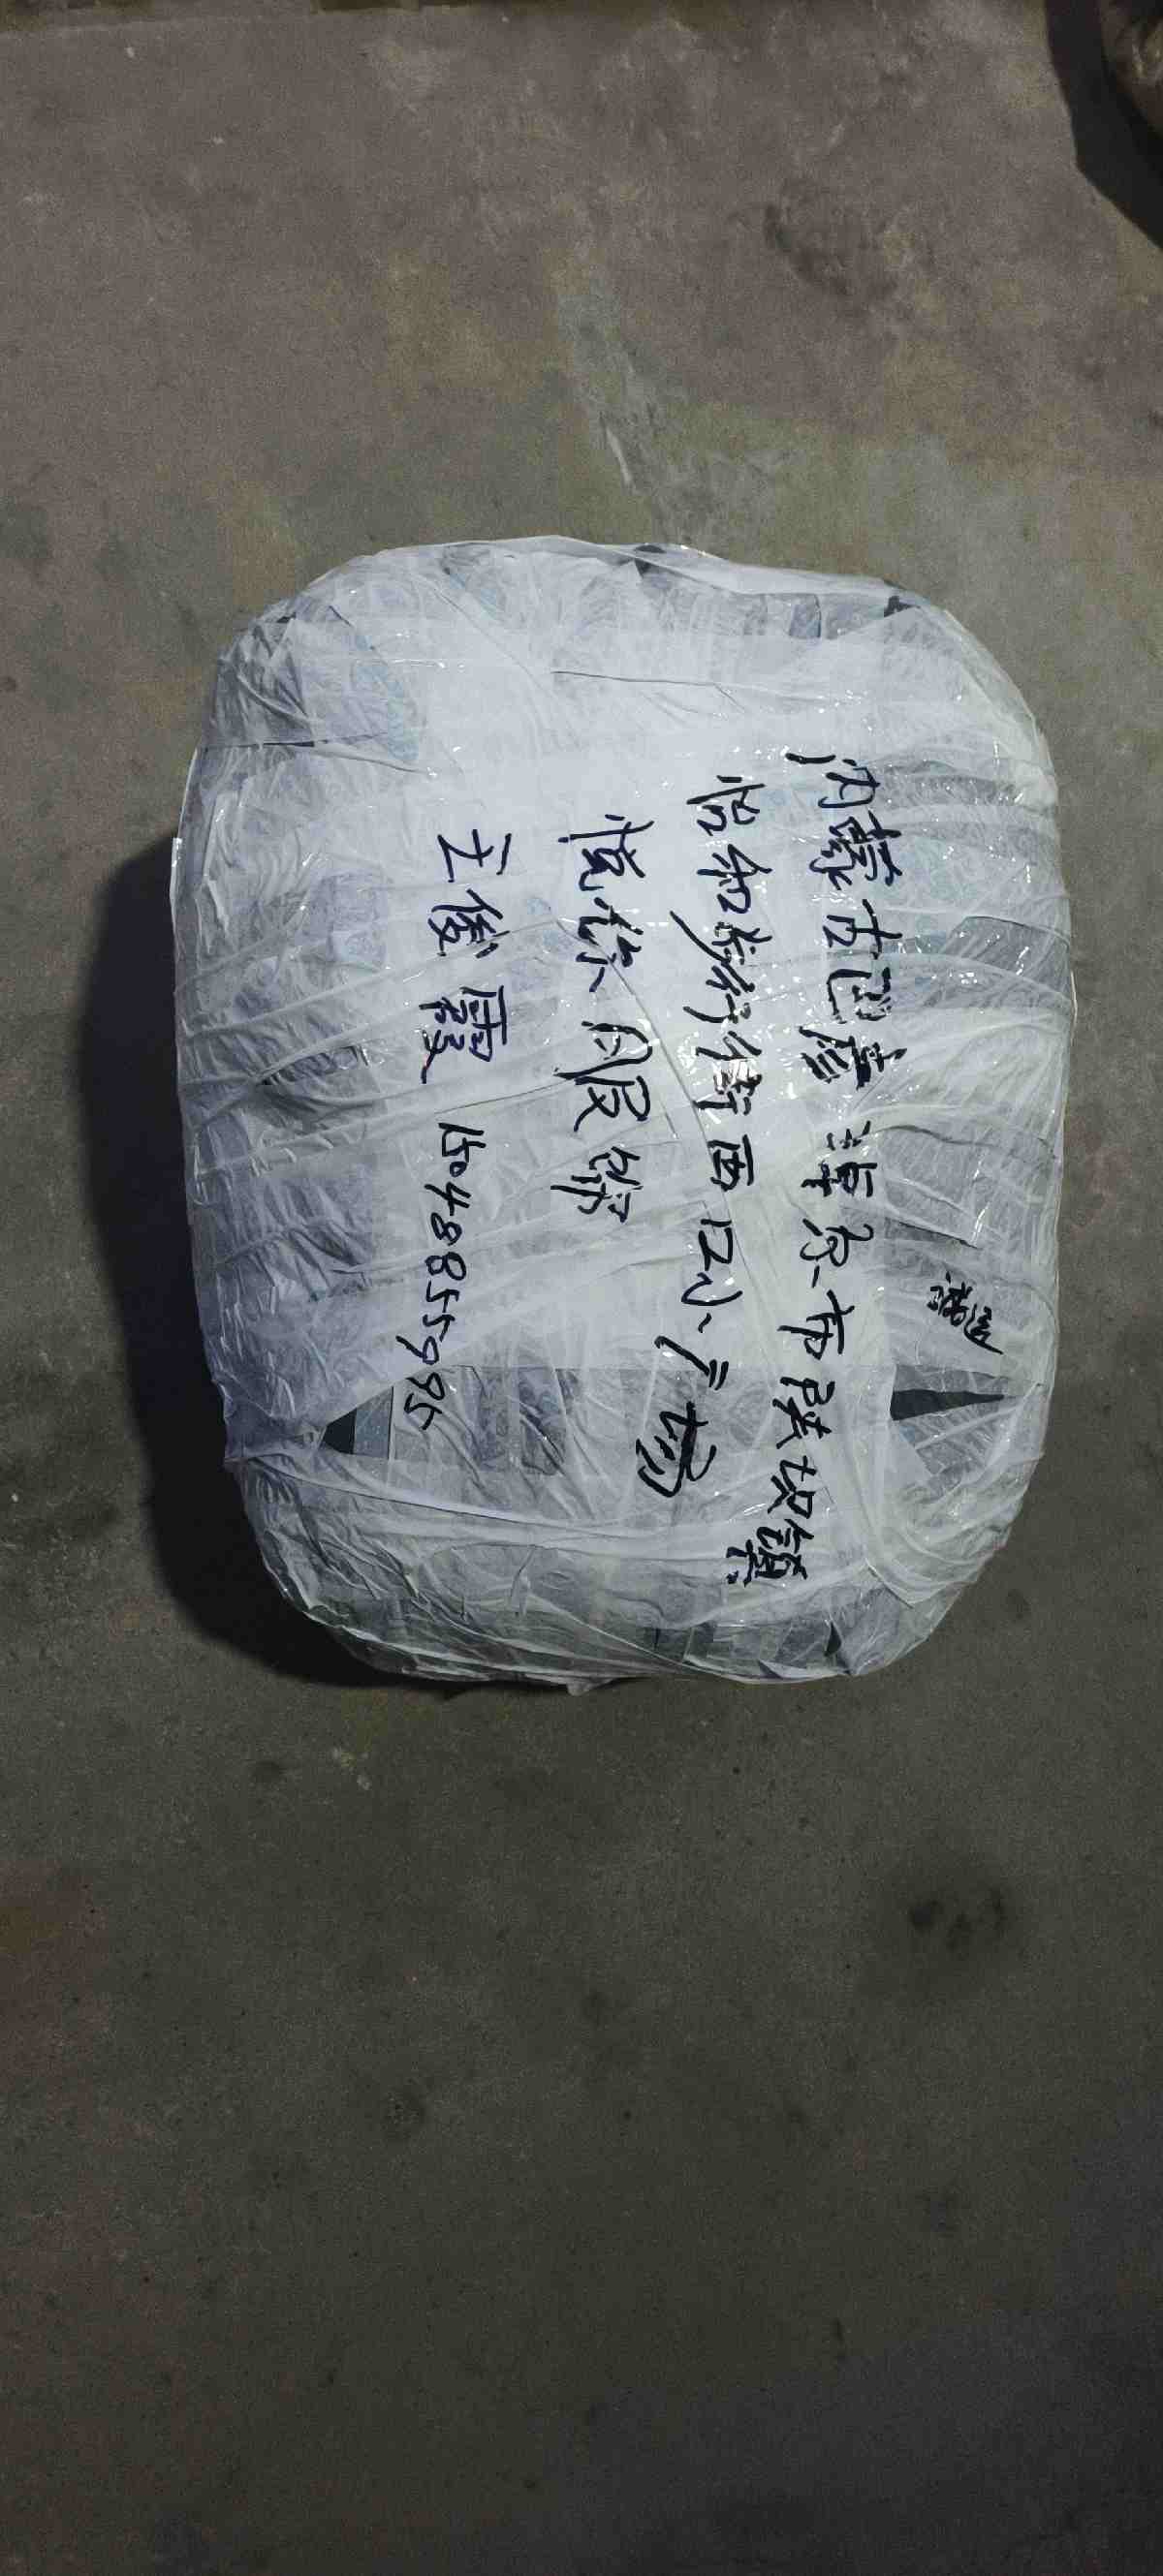 内蒙古巴彦淖尔市陕坝镇
怡和步行街西区小广场
悦榕服饰
王俊霞 15048855995